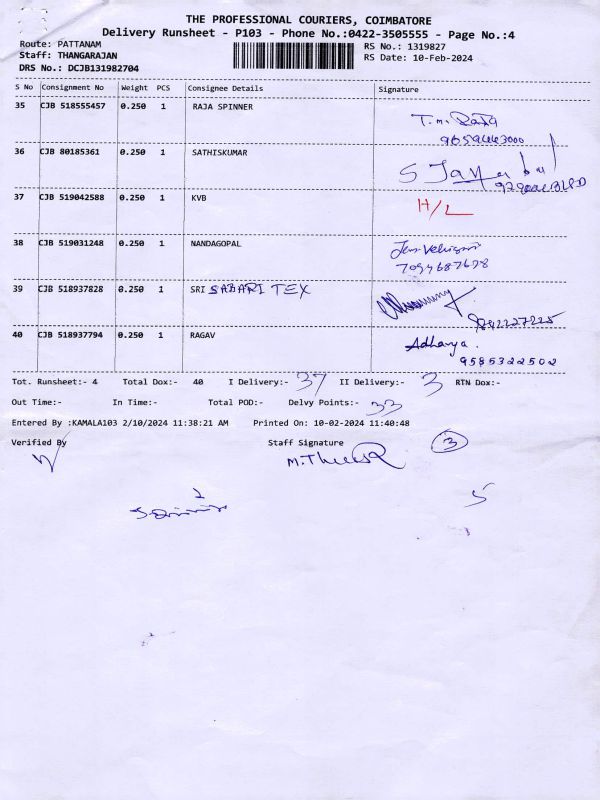 THE PROFESSIONAL COURIERS, COIMBATORE
Delivery Runsheet - P103 - Phone No.:0422-3505555 - Page No.:4
Route: PATTANAM RS No.: 1319827
Staff: THANGARAJAN RS Date: 10-Feb-2024
DRS No.: DCJB131982704
S No Consignment No Weight PCS Consignee Details Signature
35 CJB 518555457 0.250 1 RAJA SPINNER
36 CJB 80185361 0.250 1 SATHISKUMAR
37 CJB 519042588 0.250 1 KVB H/L
38 CJB 519031248 0.250 1 NANDAGOPAL
7094687678
39 CJB 518937828 0.250 1 SRI SABARI TEX
40 CJB 518937794 0.250 1 RAGAV Adharya.
9585322502
Tot. Runsheet:- 4 Total Dox:- 40 I Delivery:- 37 II Delivery:- 3 RTN Dox:-
Out Time:- In Time:- Total POD:- Delvy Points:- 33
Entered By :KAMALA103 2/10/2024 11:38:21 AM Printed On: 10-02-2024 11:40:48
Verified By Staff Signature 3
2
5